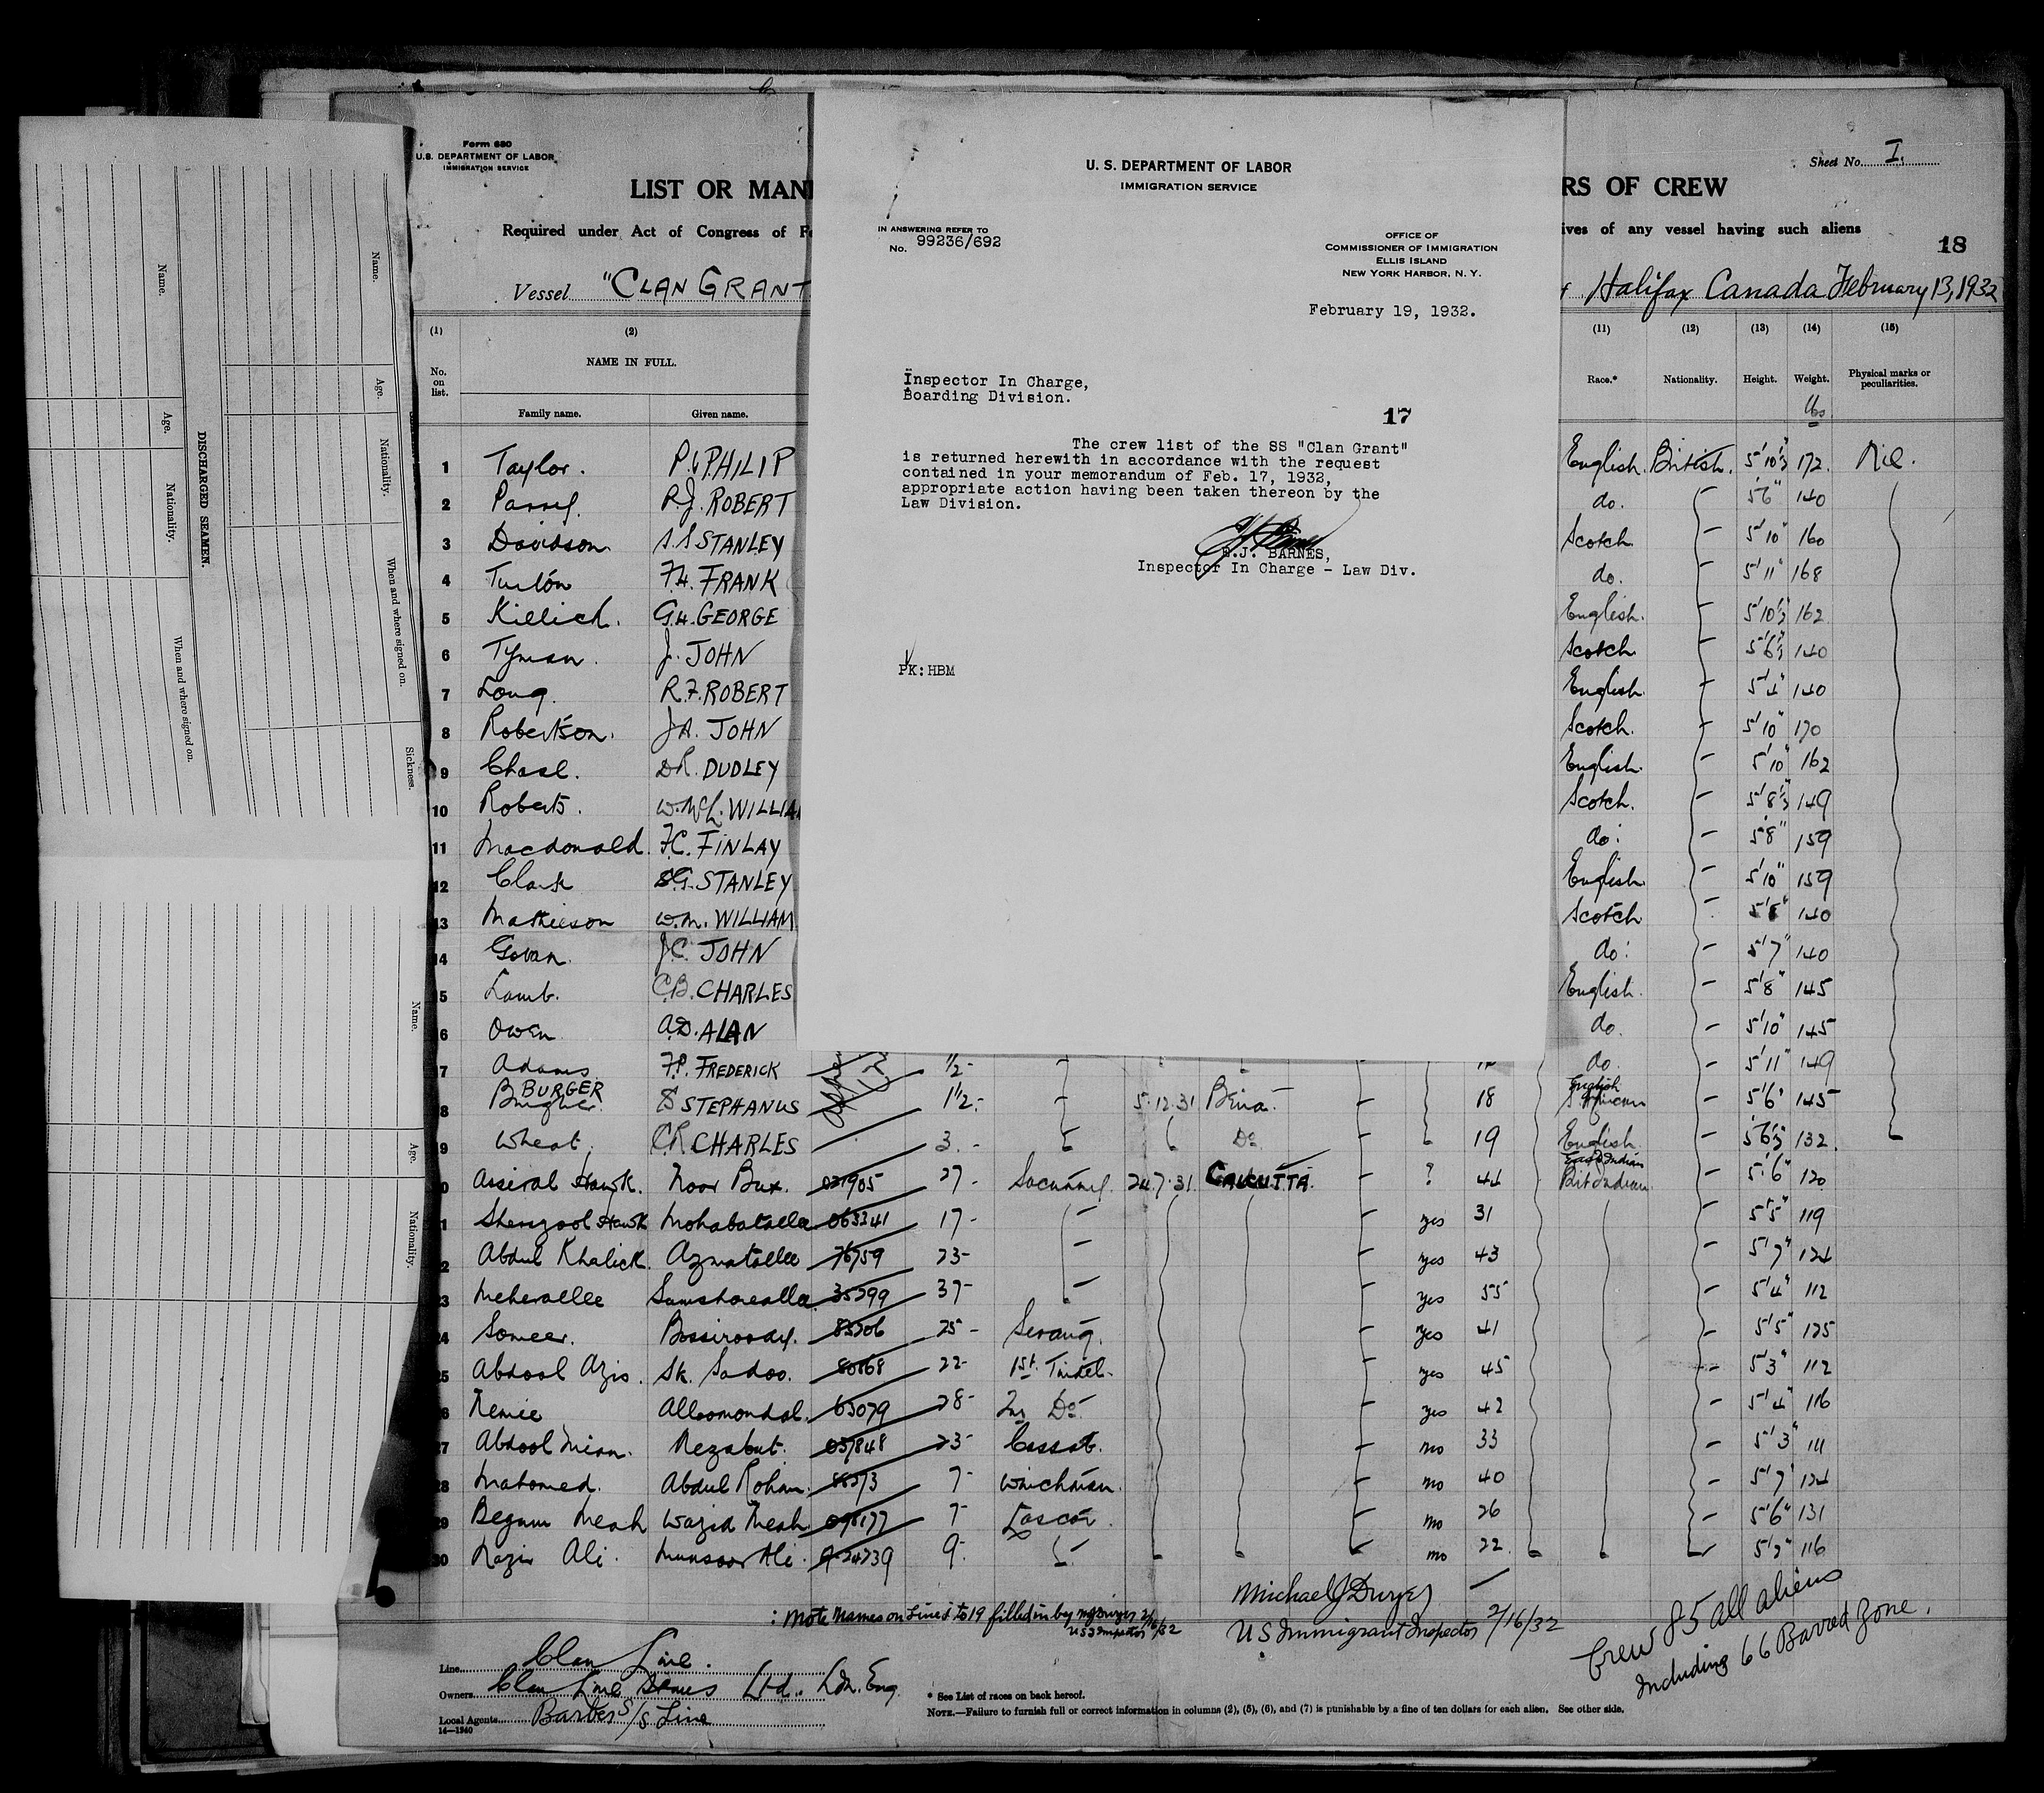 Form 680
U.S. DEPARTMENT OF LABOR
IMMIGRATION SERVICE
LIST OR MANI
Required under Act of Congress of Fe
Vessel "CLAN GRANT
(1) (2)
No. on list.
NAME IN FULL.
Family name. Given name.
DISCHARGED SEAMEN.
Name. Age. Nationality. When and where signed on.
Name. Age. Nationality. When and where signed on. Sickness.
Name. Age. Nationality.
U. S. DEPARTMENT OF LABOR
IMMIGRATION SERVICE
IN ANSWERING REFER TO
No. 99236/692
OFFICE OF
COMMISSIONER OF IMMIGRATION
ELLIS ISLAND
NEW YORK HARBOR, N. Y.
February 19, 1932.
Inspector In Charge,
Boarding Division.
17
The crew list of the SS "Clan Grant"
is returned herewith in accordance with the request
contained in your memorandum of Feb. 17, 1932,
appropriate action having been taken thereon by the
Law Division.
E.J. BARNES,
Inspector In Charge - Law Div.
PK:HBM
Sheet No. I.
RS OF CREW
ives of any vessel having such aliens
18
Halifax Canada February 13, 1932
(11) (12) (13) (14) (15)
Race.* Nationality. Height. Weight. Physical marks or peculiarities.
lbs
1 Taylor. PHILIP English. British. 5'10½" 172. Nil.
2 R.J. ROBERT do. 5'6" 140
3 Davidson S.S STANLEY Scotch 5'10" 160
4 F.H. FRANK do. 5'11" 168
5 Killick. G.H. GEORGE English. 5'10½" 162
6 Tyman. J. JOHN Scotch 5'6½" 140
7 Long. R.F. ROBERT English 5'4" 140
8 Robertson. J.A. JOHN Scotch. 5'10" 170
9 Chase. D.R. DUDLEY English. 5'10" 162
10 Roberts. W.McL. WILLIAM Scotch. 5'8½" 149
11 Macdonald. F.C. FINLAY do. 5'8" 159
12 Clark S.G. STANLEY English 5'10" 159
13 Mathieson W.M. WILLIAM Scotch 140
14 Govan. J.C. JOHN do. 5'7" 140
5 Lamb. C.B. CHARLES English. 5'8" 145
6 Owen A.D. ALAN do. 5'10" 145
7 Adams F.P. FREDERICK ½- do 5'11" 149
8 BURGER S STEPHANUS 1½- 5.12.31 18 English 5'6" 145
9 Wheat. C.R. CHARLES 3.- Do 19 English 5'6½" 132
0 Asseral Hawk. Noor Bux. 021905 27- 24.7.31 CALCUTTA ? 44 East Indian Brit Indian 5'6" 120
1 Sheragool Hawk Mohabatallee 063341 17- yes 31 5'5" 119
2 Abdul Khalick. Azmatallee 76759 23- yes 43 5'7" 124
23 Meherallee 35299 37- yes 55 5'4" 112
24 Someer. 83206 25- Serang. yes 41 5'5" 125
25 Abdool Azis. Sk. Sadoo. 80868 22- 1st. Tindel. yes 45 5'3" 112
6 65079 28- 2nd Do yes 42 5'4" 116
27 Abdool Mian. 037848 23- Cassab. no 33 5'3" 111
28 Mahomed. Abdul Rohim. 7- Winchman. no 40 5'7" 124
29 Begum Meah Wazid Meah 7- Lascar. no 26 5'6" 131
30 Nazir Ali. Munsoor Ali. 24739 9. no 22 5'2" 116
: Note Names on Lines 1 to 19 filled in by MJDwyer 2/16/32
US Inspector
Michael J Dwyer
US Immigrant Inspector 2/16/32
Crew 85 all aliens
Including 66 Barred Zone.
Line Clan Line.
Owners Clan Line Steamers Ltd., Ldn. Eng.
Local Agents Barber S/S Line
14—1940
* See List of races on back hereof.
NOTE.—Failure to furnish full or correct information in columns (2), (5), (6), and (7) is punishable by a fine of ten dollars for each alien. See other side.